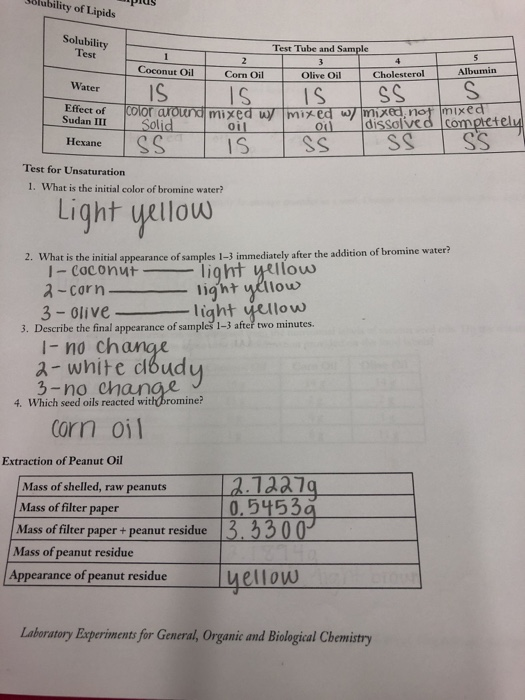 Solubility of Lipids
Solubility Test
Test Tube and Sample
1 2 3 4 5
Coconut Oil Corn Oil Olive Oil Cholesterol Albumin
Water IS IS IS SS S
Effect of Sudan III color around solid mixed w/ oil mixed w/ oil mixed, not dissolved mixed completely
Hexane SS IS SS SS SS
Test for Unsaturation
1. What is the initial color of bromine water?
Light yellow
2. What is the initial appearance of samples 1–3 immediately after the addition of bromine water?
1 - coconut — light yellow
2 - corn — light yellow
3 - olive — light yellow
3. Describe the final appearance of samples 1–3 after two minutes.
1 - no change
2 - white cloudy
3 - no change
4. Which seed oils reacted with bromine?
corn oil
Extraction of Peanut Oil
Mass of shelled, raw peanuts 2.7227g
Mass of filter paper 0.5453g
Mass of filter paper + peanut residue 3.3300
Mass of peanut residue
Appearance of peanut residue yellow
Laboratory Experiments for General, Organic and Biological Chemistry